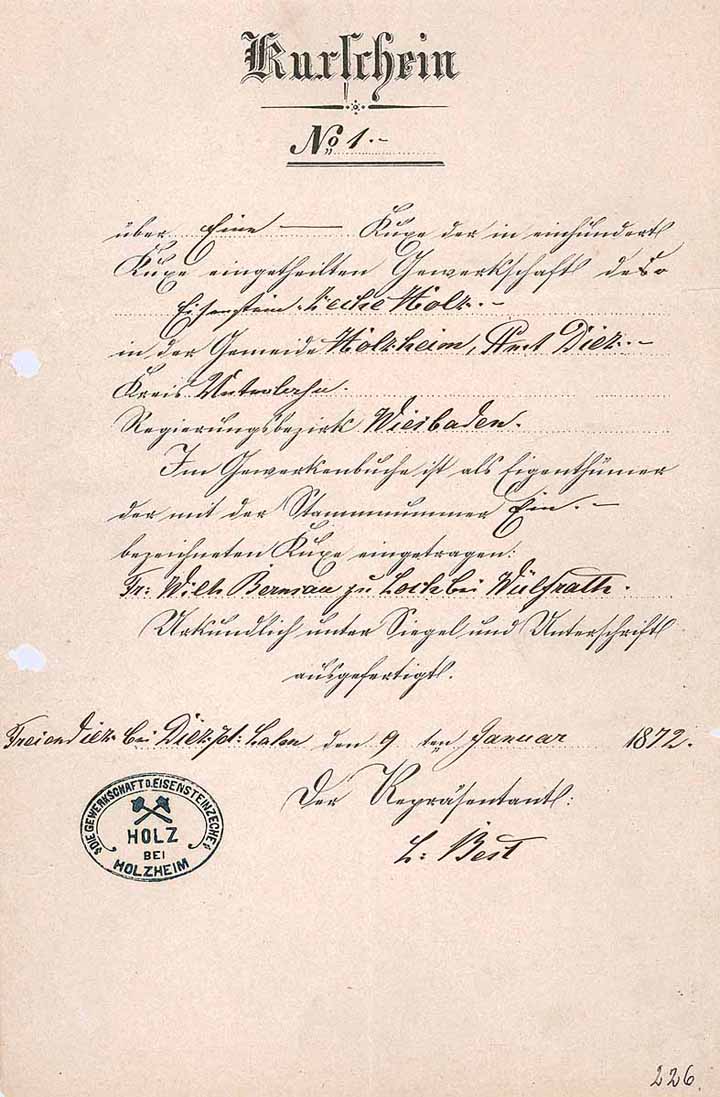 Kuxschein
No. 1.-
über Eine — Kuxe der in einhundert
Kuxe eingetheilten Gewerkschaft des
Eisenstein-Zeche Holz.-
in der Gemeide Holzheim, Amt Diez.-
Kreis Unterlahn.
Regierungsbezirk Wiesbaden.
Im Gewerkenbuche ist als Eigenthümer
der mit der Stammnummer Ein.-
bezeichneten Kuxe eingetragen:
Fr: Wilh Bernsau zu Loch bei Wülfrath.
Urkundlich unter Siegel und Unterschrift
ausgefertigt.
Freiendiez bei Diez a/d: Lahn den 9ten Januar 1872.
Der Repräsentant:
L: Best
DIE GEWERKSCHAFT D. EISENSTEINZECHE
HOLZ
BEI
HOLZHEIM
226